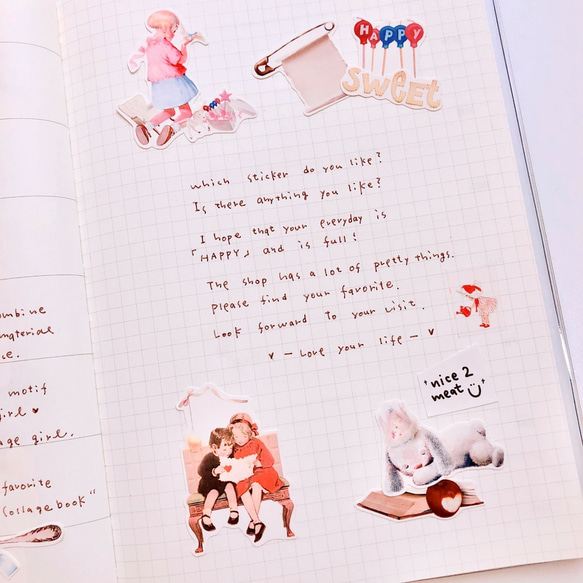 HAPPY
SWEET
which sticker do you like?
Is there anything you like?
I hope that your everyday is
「HAPPY」 and is full!
The shop has a lot of pretty things.
Please find your favorite.
Look forward to your visit.
♥ - Love your life - ♥
nice 2
meat
material
motif
girl ♥
girl.
favorite
book"